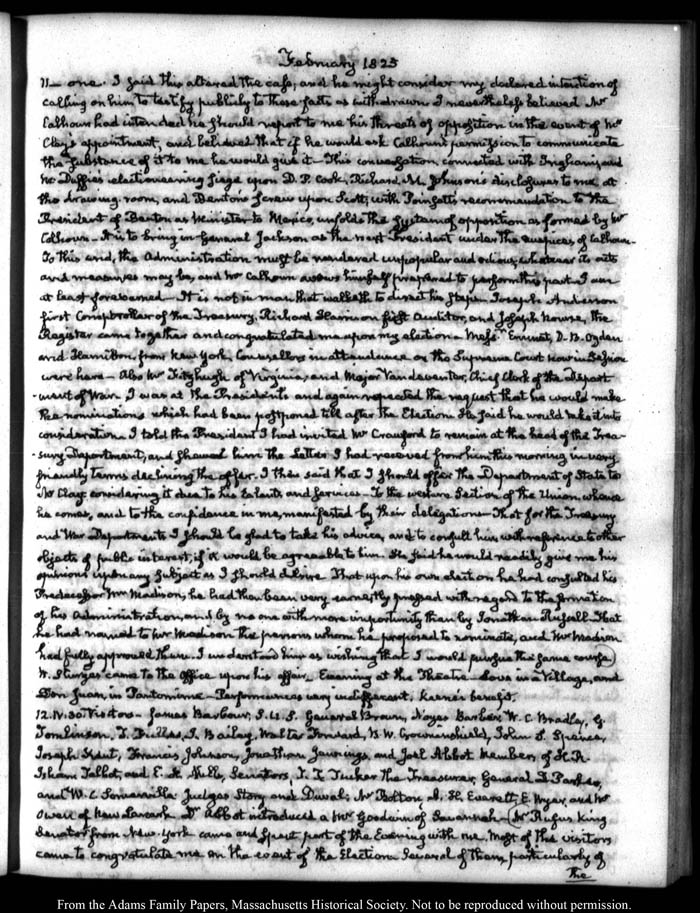 February 1825
11— one. I said this altered the case, and he might consider my declared intention of
calling on him to testify publicly to these facts as withdrawn. I nevertheless believed Mr
Calhoun had intended he should report to me his threats of opposition in the event of Mr
Clay's appointment, and believed that if he would ask Calhoun's permission to communicate
the substance of it to me he would give it— This conversation, connected with Ingham's, and
McDuffie's electioneering siege upon D. P. Cook, Richard M. Johnson's disclosures to me, at
the drawing-room, and Benton's screw upon Scott; with Poinsett's recommendation to the
President of Benton as Minister to Mexico, unfolds the system of opposition as formed by Mr
Calhoun— It is to bring in General Jackson as the next President under the auspices of Calhoun—
To this end, the Administration must be rendered unpopular and odious, whatever its acts
and measures may be, and Mr Calhoun avows himself prepared to perform this part. I am
at least forewarned— It is not in man that walketh to direct his steps— Joseph Anderson
first Comptroller of the Treasury, Richard Harrison first Auditor, and Joseph Nourse, the
Register came together and congratulated me upon my election— Messrs. Emmet, D. B. Ogden
and Hamilton, from New York, Counsellors in attendance on the Supreme Court now in Session
were here— Also Mr Fitzhugh of Virginia, and Major Vandeventer, Chief Clerk of the Depart-
ment of War. I was at the President's and again repeated the request that he would make
the nominations which had been postponed till after the Election. He said he would take it into
consideration. I told the President I had invited Mr Crawford to remain at the head of the Trea-
sury Department, and shewed him the Letter I had received from him this morning in very
friendly terms declining the offer. I then said that I should offer the Department of State to
Mr Clay, considering it due to his talents and services— To the western Section of the Union, whence
he comes, and to the confidence in me, manifested by their delegations— That for the Treasury
and War Departments I should be glad to take his advice, and to consult him, with reference to other
objects of public interest, if it would be agreeable to him. He said he would readily give me his
opinions upon any subject as I should desire. That upon his own election he had consulted his
Predecessor Mr Madison, he had then been very earnestly pressed with regard to the formation
of his Administration, and by no one with more importunity than by Jonathan Russell— That
he had named to Mr Madison the persons whom he proposed to nominate, and Mr Madison
had fully approved them. I understand him as wishing that I would pursue the same course
W. Sturges came to the Office upon his affair. Evening at the Theatre— Love in a Village, and
Don Juan, in Pantomime— Performances very indifferent. Keene's benefit.
12. IV. 30. Visitors— James Barbour, S. U. S. General Brown, Noyes Barber, W. C. Bradley, G.
Tomlinson, J. Bailey, Walter Forward, B. W. Crowninshield, John S. Spence,
Joseph Kent, Francis Johnson, Jonathan Jennings, and Joel Abbot members of H. R.
Isham Talbot, and E. H. Mills, Senators, T. T. Tucker the Treasurer, General D. Parker,
and W. C. Somerville. Judges Story, and Duval; Mr Bolton, A. H. Everett, E. Wyer, and Mr
Owen of New Lanark. Dr Abbot introduced a Mr Goodwin of Savannah— Mr Rufus King
Senator from New-York came and spent part of the Evening with me. Most of the visitors
came to congratulate me on the event of the Election. Several of them, particularly of
the
From the Adams Family Papers, Massachusetts Historical Society. Not to be reproduced without permission.